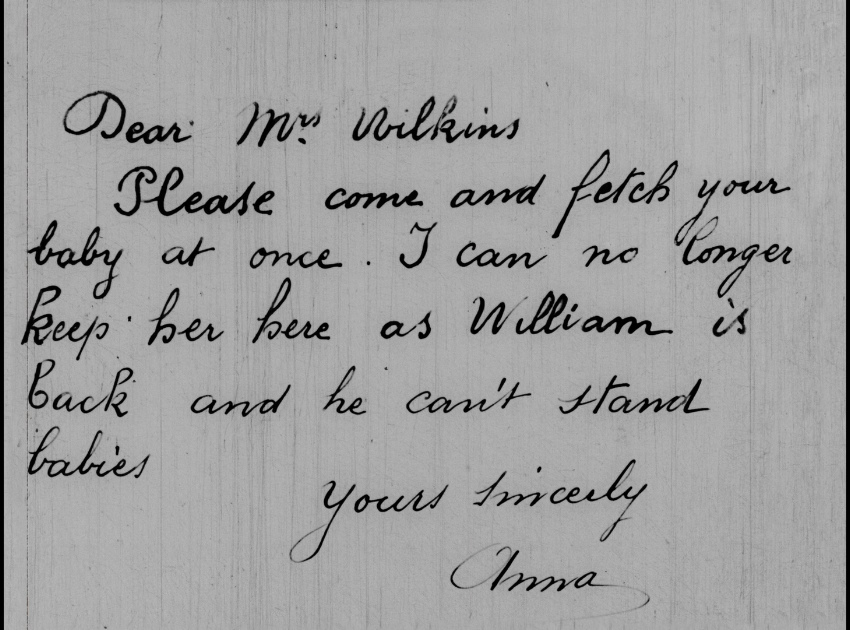 Dear Mrs Wilkins
Please come and fetch your
baby at once. I can no longer
keep her here as William is
back and he can't stand
babies
Yours sincerly
Anna